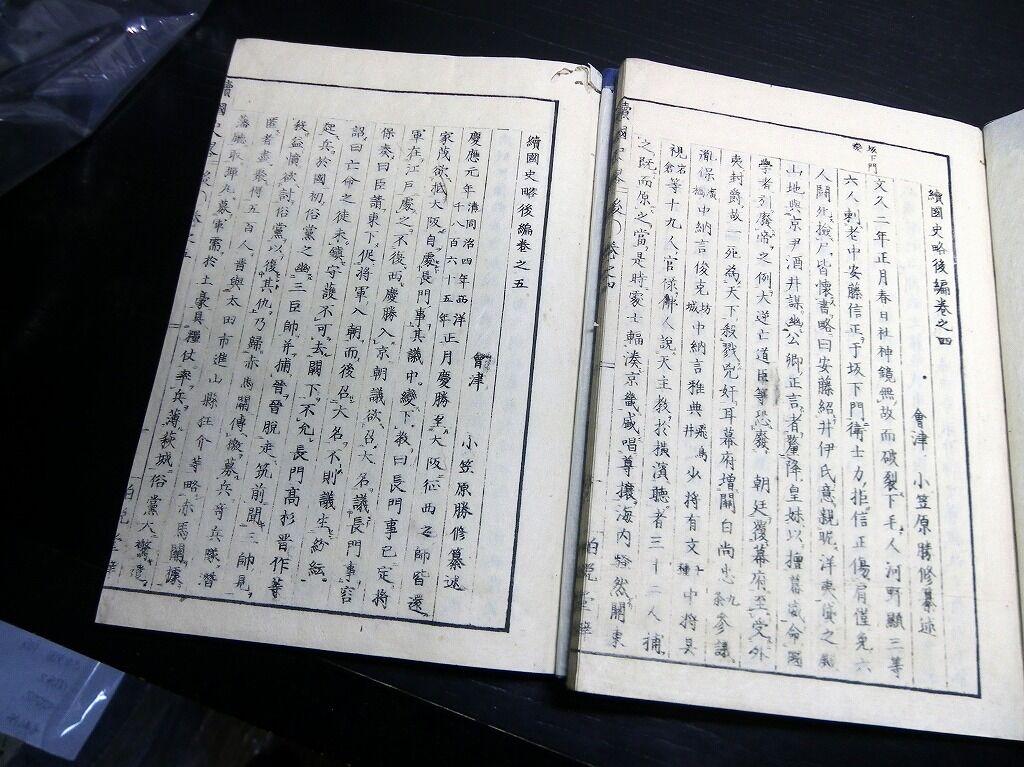 續國史略後編卷之四
會津 小笠原勝修纂述
文久二年正月春日社神鏡無故而破裂下毛人河野顯三等
六人刺老中安藤信正于坂下門衛士力拒信正傷肩僅免六
坂下門
變
人鬪死撿尸皆懷書略曰安藤紹井伊氏意親昵洋夷貸之
山地與京尹酒井謀幽公卿正言者釐降皇妹以擅幕威命國
學者引廢帝之例大逆亡道臣等恐廢 朝廷覆幕府至受外
夷封爵故一死為天下殺戮兇奸耳幕府增關白尚忠九條參議
胤保廣橋中納言俊克坊城中納言雅典飛鳥井少將有文千種中將具
視岩倉等十九人官祿佛人說天主教於橫濱聽者三十二人捕
之既而原之當是時處士輻湊京畿盛唱尊攘海内騷然關東
續國史略後 卷之四
柏悅堂
續國史略後編卷之五
會津 小笠原勝修纂述
慶應元年清同治四年西洋千八百六十五年正月慶勝至大阪征西之師皆還
家茂欲抵大阪自處長門事其議中變下教曰長門事已定將
軍在江戶處之不復西慶勝入京朝議欲召大名議長門事容
保奏曰臣請東下促將軍入朝而後召大名不則議生紛紜
詔曰亡命之徒未鎮守護不可去闕下不允長門高杉晉作等
起兵於國初俗黨之幽三臣帥并捕晉晉脫走筑前聞三帥見
殺益憤欲討俗黨以復其仇乃歸赤馬關傳檄募兵奇兵隊潛
匿者盡來得五百人晉與太田市進山縣狂介等略赤馬關據
番廳取
幕軍需於土豪具糧仗率兵薄萩城俗黨大驚
柏悅堂